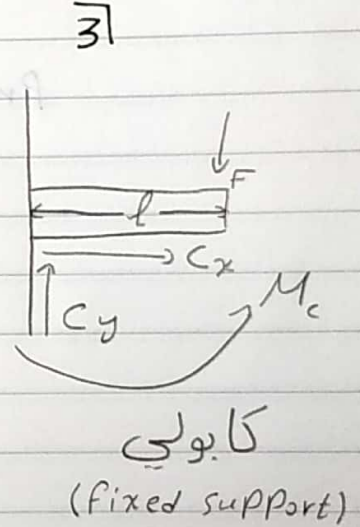 3
F
l
Cx
Cy
Mc
كابولي
(fixed support)